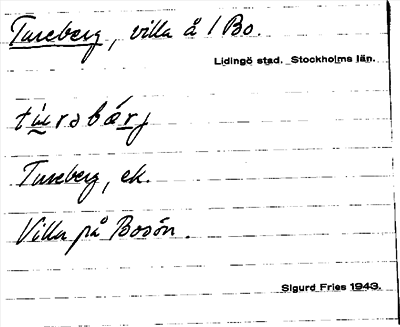 Tureberg, villa å 1 Bo.
Lidingö stad. Stockholms län.
tu̍rəbárj
Tureberg, ek.
Villa på Bosön.
Sigurd Fries 1943.